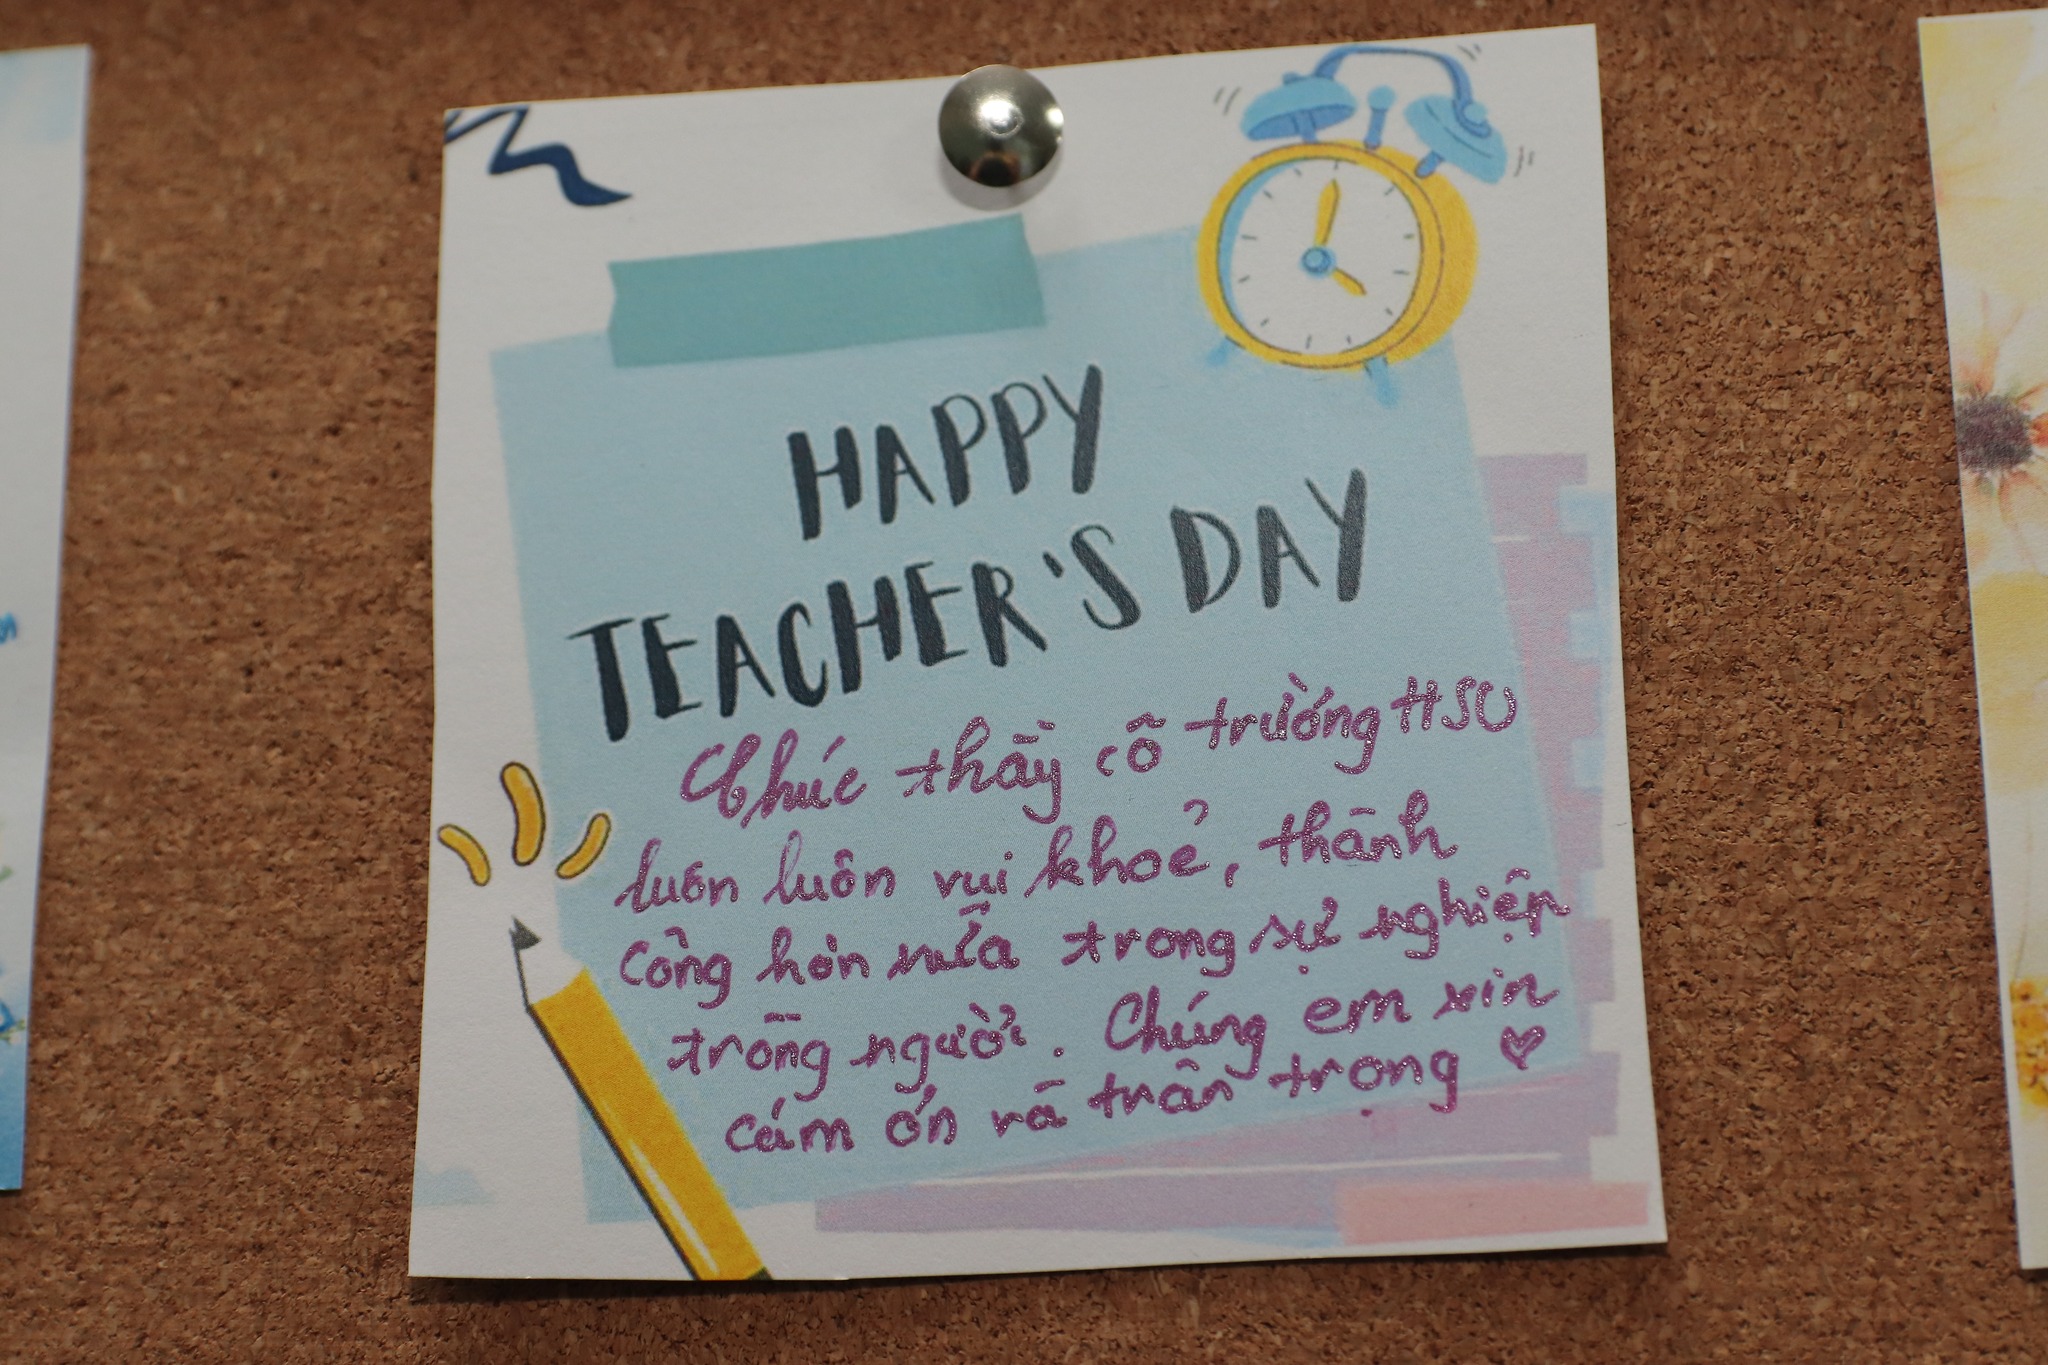 HAPPY
TEACHER'S DAY
Chúc thầy cô trường HSU
luôn luôn vui khoẻ, thành
công hơn nữa trong sự nghiệp
trồng người. Chúng em xin
cám ơn và trân trọng ♡